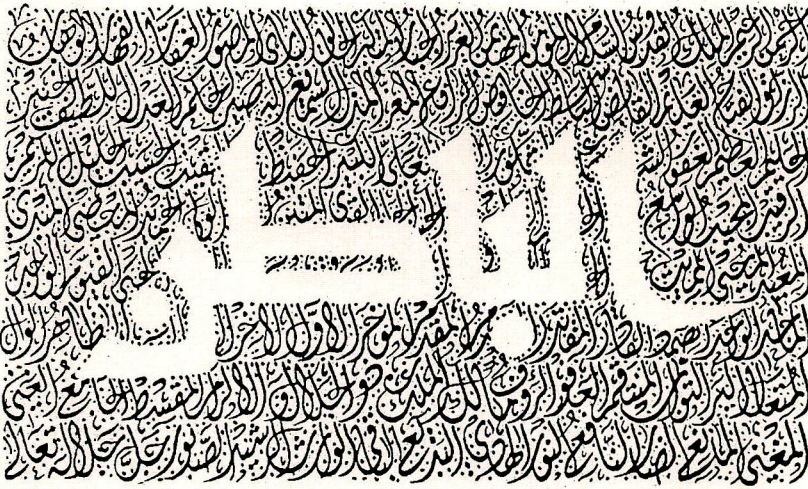 الباطن
الرحمن الرحيم الملك القدوس السلام المؤمن المهيمن العزيز الجبار المتكبر الخالق البارئ المصور الغفار القهار الوهاب
الرزاق الفتاح العليم القابض الباسط الخافض الرافع المعز المذل السميع البصير الحكم العدل اللطيف الخبير
الحليم العظيم الغفور الشكور العلي الكبير الحفيظ المقيت الحسيب الجليل الكريم
الرقيب المجيب الواسع القوي المتين الولي الحميد المحصي المبدئ
المعيد المحيي المميت الحي القيوم الواجد
الماجد الواحد الصمد القادر المقتدر المقدم المؤخر الأول الآخر الظاهر الوالي
المتعال البر التواب المنتقم العفو الرؤوف مالك الملك ذو الجلال والإكرام المقسط الجامع الغني
المغني المانع الضار النافع النور الهادي البديع الباقي الوارث الرشيد الصبور جل جلاله تعالى